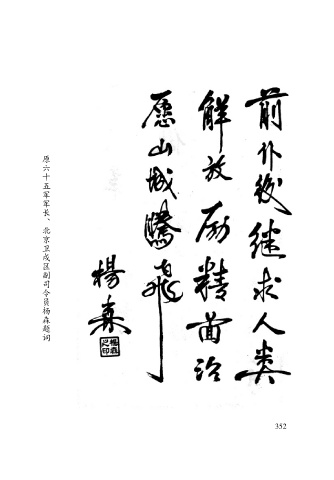 前仆後继求人类
解放励精图治
愿山城騰飛
楊森
楊森之印
原六十五军军长、北京卫戍区副司令员杨森题词
352